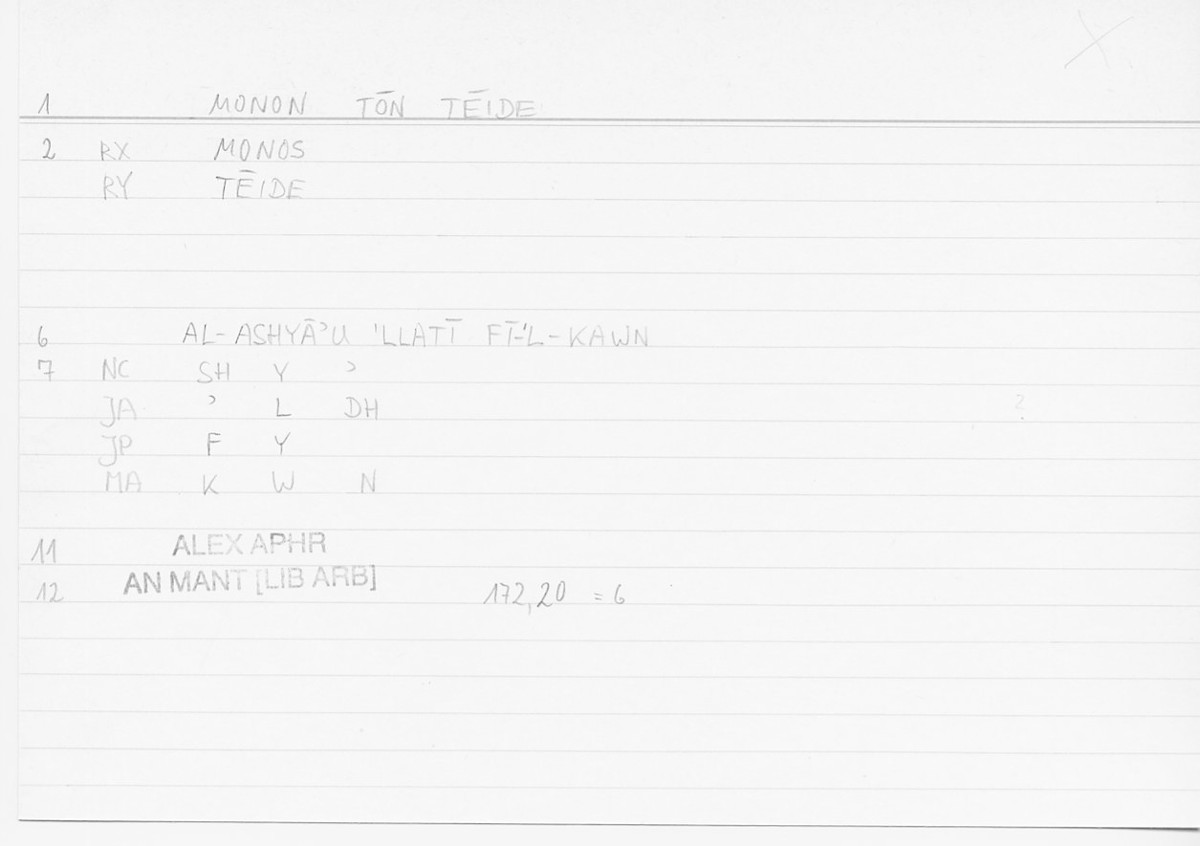 1 MONON TŌN TĒIDE
2 RX MONOS
RY TĒIDE
6 AL-ASHYĀʾU 'LLATĪ FĪ-'L-KAWN
7 NC SH Y ʾ
JA ʾ L DH ?
JP F Y
MA K W N
11 ALEX APHR
12 AN MANT [LIB ARB] 172,20 = 6